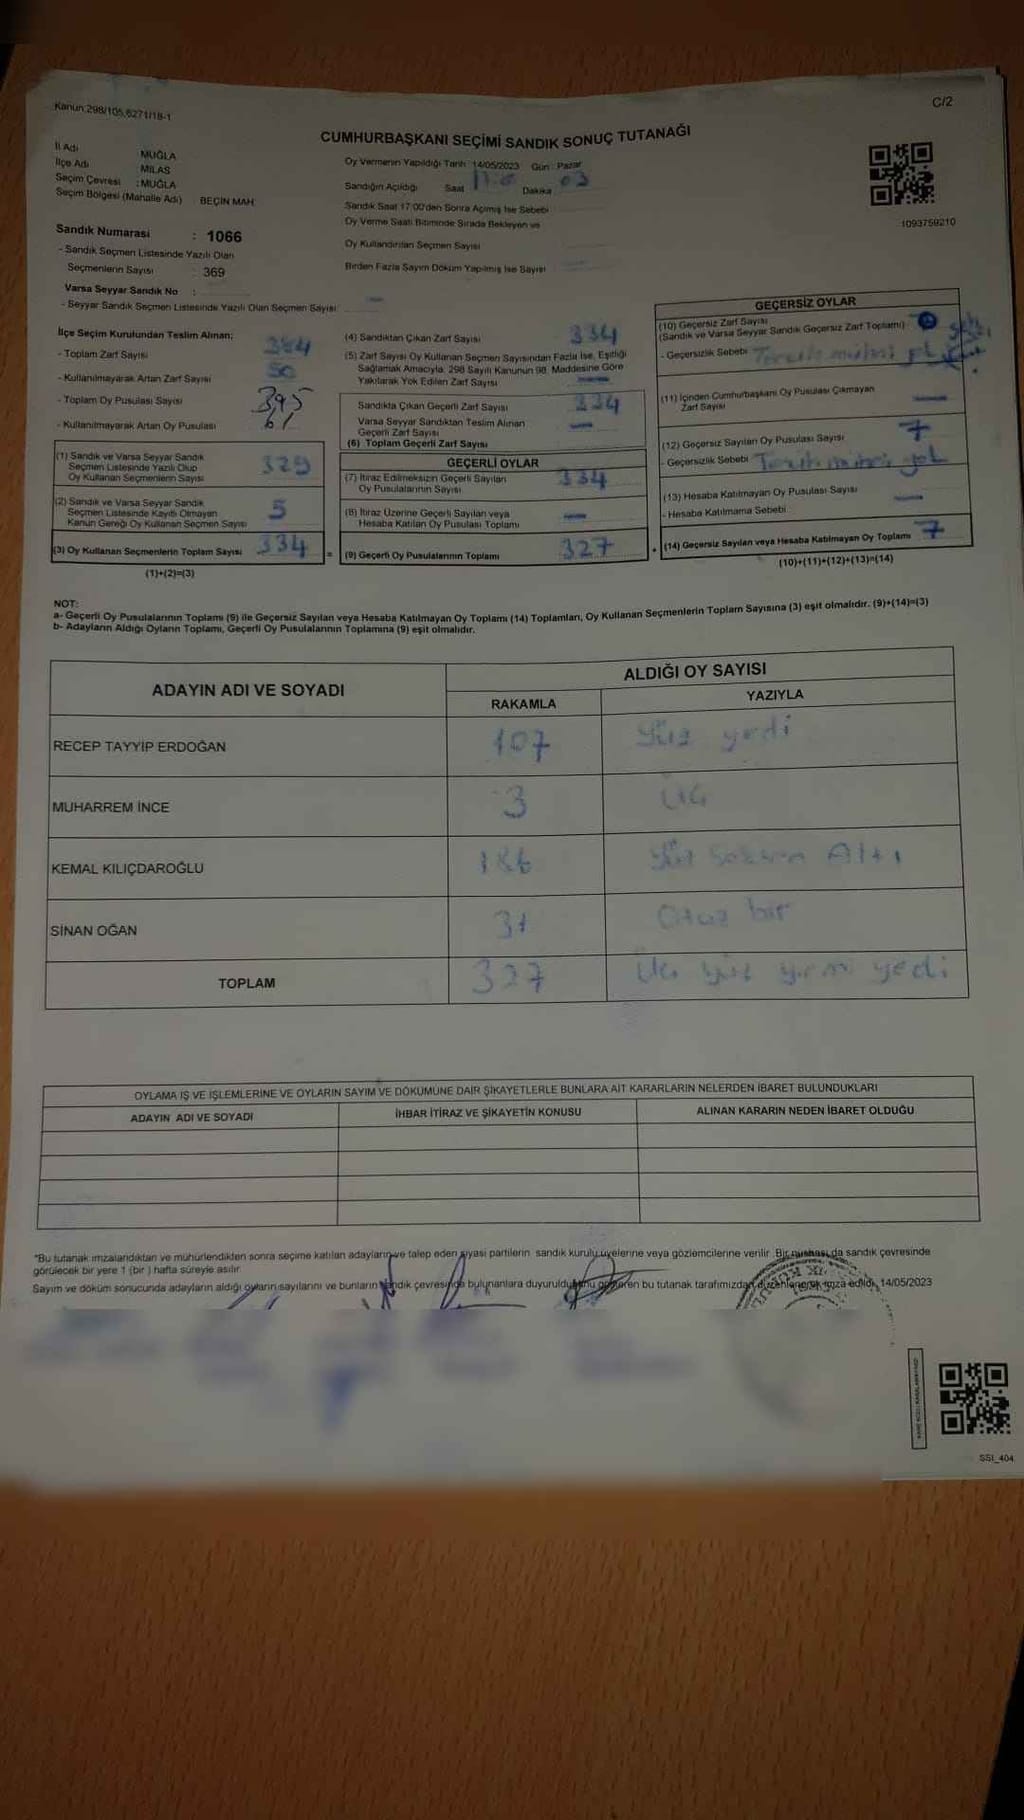 Kanun 298/105,6271/18-1
C/2
CUMHURBAŞKANI SEÇİMİ SANDIK SONUÇ TUTANAĞI
İl Adı MUĞLA
İlçe Adı MİLAS
Seçim Çevresi : MUĞLA
Seçim Bölgesi (Mahalle Adı) BEÇİN MAH.
Oy Vermenin Yapıldığı Tarih 14/05/2023 Gün : Pazar
Sandığın Açıldığı Saat Dakika 03
Sandık Saat 17:00'den Sonra Açılmış İse Sebebi
Oy Verme Saati Bitiminde Sırada Bekleyen ve
Oy Kullandırılan Seçmen Sayısı
Birden Fazla Sayım Döküm Yapılmış İse Sayısı
1093759210
Sandık Numarası : 1066
- Sandık Seçmen Listesinde Yazılı Olan
Seçmenlerin Sayısı : 369
Varsa Seyyar Sandık No :
- Seyyar Sandık Seçmen Listesinde Yazılı Olan Seçmen Sayısı:
İlçe Seçim Kurulundan Teslim Alınan:
- Toplam Zarf Sayısı 384
- Kullanılmayarak Artan Zarf Sayısı 50
- Toplam Oy Pusulası Sayısı 395
- Kullanılmayarak Artan Oy Pusulası 61
(1) Sandık ve Varsa Seyyar Sandık
Seçmen Listesinde Yazılı Olup
Oy Kullanan Seçmenlerin Sayısı 329
(2) Sandık ve Varsa Seyyar Sandık
Seçmen Listesinde Kayıtlı Olmayan
Kanun Gereği Oy Kullanan Seçmen Sayısı 5
(3) Oy Kullanan Seçmenlerin Toplam Sayısı 334
(1)+(2)=(3)
(4) Sandıktan Çıkan Zarf Sayısı 334
(5) Zarf Sayısı Oy Kullanan Seçmen Sayısından Fazla İse, Eşitliği
Sağlamak Amacıyla 298 Sayılı Kanunun 98. Maddesine Göre
Yakılarak Yok Edilen Zarf Sayısı
Sandıkta Çıkan Geçerli Zarf Sayısı 334
Varsa Seyyar Sandıktan Teslim Alınan
Geçerli Zarf Sayısı
(6) Toplam Geçerli Zarf Sayısı
GEÇERLİ OYLAR
(7) İtiraz Edilmeksizin Geçerli Sayılan
Oy Pusulalarının Sayısı 334
(8) İtiraz Üzerine Geçerli Sayılan veya
Hesaba Katılan Oy Pusulası Toplamı
= (9) Geçerli Oy Pusulalarının Toplamı 327
GEÇERSİZ OYLAR
(10) Geçersiz Zarf Sayısı
(Sandık ve Varsa Seyyar Sandık Geçersiz Zarf Toplamı)
- Geçersizlik Sebebi Tercih mührü
(11) İçinden Cumhurbaşkanı Oy Pusulası Çıkmayan
Zarf Sayısı
(12) Geçersiz Sayılan Oy Pusulası Sayısı 7
- Geçersizlik Sebebi Tercih mührü yok
(13) Hesaba Katılmayan Oy Pusulası Sayısı
- Hesaba Katılmama Sebebi
+ (14) Geçersiz Sayılan veya Hesaba Katılmayan Oy Toplamı 7
(10)+(11)+(12)+(13)=(14)
NOT:
a- Geçerli Oy Pusulalarının Toplamı (9) ile Geçersiz Sayılan veya Hesaba Katılmayan Oy Toplamı (14) Toplamları, Oy Kullanan Seçmenlerin Toplam Sayısına (3) eşit olmalıdır. (9)+(14)=(3)
b- Adayların Aldığı Oyların Toplamı, Geçerli Oy Pusulalarının Toplamına (9) eşit olmalıdır.
ADAYIN ADI VE SOYADI ALDIĞI OY SAYISI
RAKAMLA YAZIYLA
RECEP TAYYİP ERDOĞAN 107 Yüz yedi
MUHARREM İNCE 3 Üç
KEMAL KILIÇDAROĞLU 186 Yüz Seksen Altı
SİNAN OĞAN 31 Otuz bir
TOPLAM 327 Üç yüz yirmi yedi
OYLAMA İŞ VE İŞLEMLERİNE VE OYLARIN SAYIM VE DÖKÜMÜNE DAİR ŞİKAYETLERLE BUNLARA AİT KARARLARIN NELERDEN İBARET BULUNDUKLARI
ADAYIN ADI VE SOYADI İHBAR İTİRAZ VE ŞİKAYETİN KONUSU ALINAN KARARIN NEDEN İBARET OLDUĞU
*Bu tutanak imzalandıktan ve mühürlendikten sonra seçime katılan adayların ve talep eden siyasi partilerin sandık kurulu üyelerine veya gözlemcilerine verilir. Bir nüshası da sandık çevresinde
görülecek bir yere 1 (bir) hafta süreyle asılır.
Sayım ve döküm sonucunda adayların aldığı oyların sayılarını ve bunların sandık çevresinde bulunanlara duyurulduğunu gösteren bu tutanak tarafımızdan düzenlenerek imza edildi. 14/05/2023
SSI_404